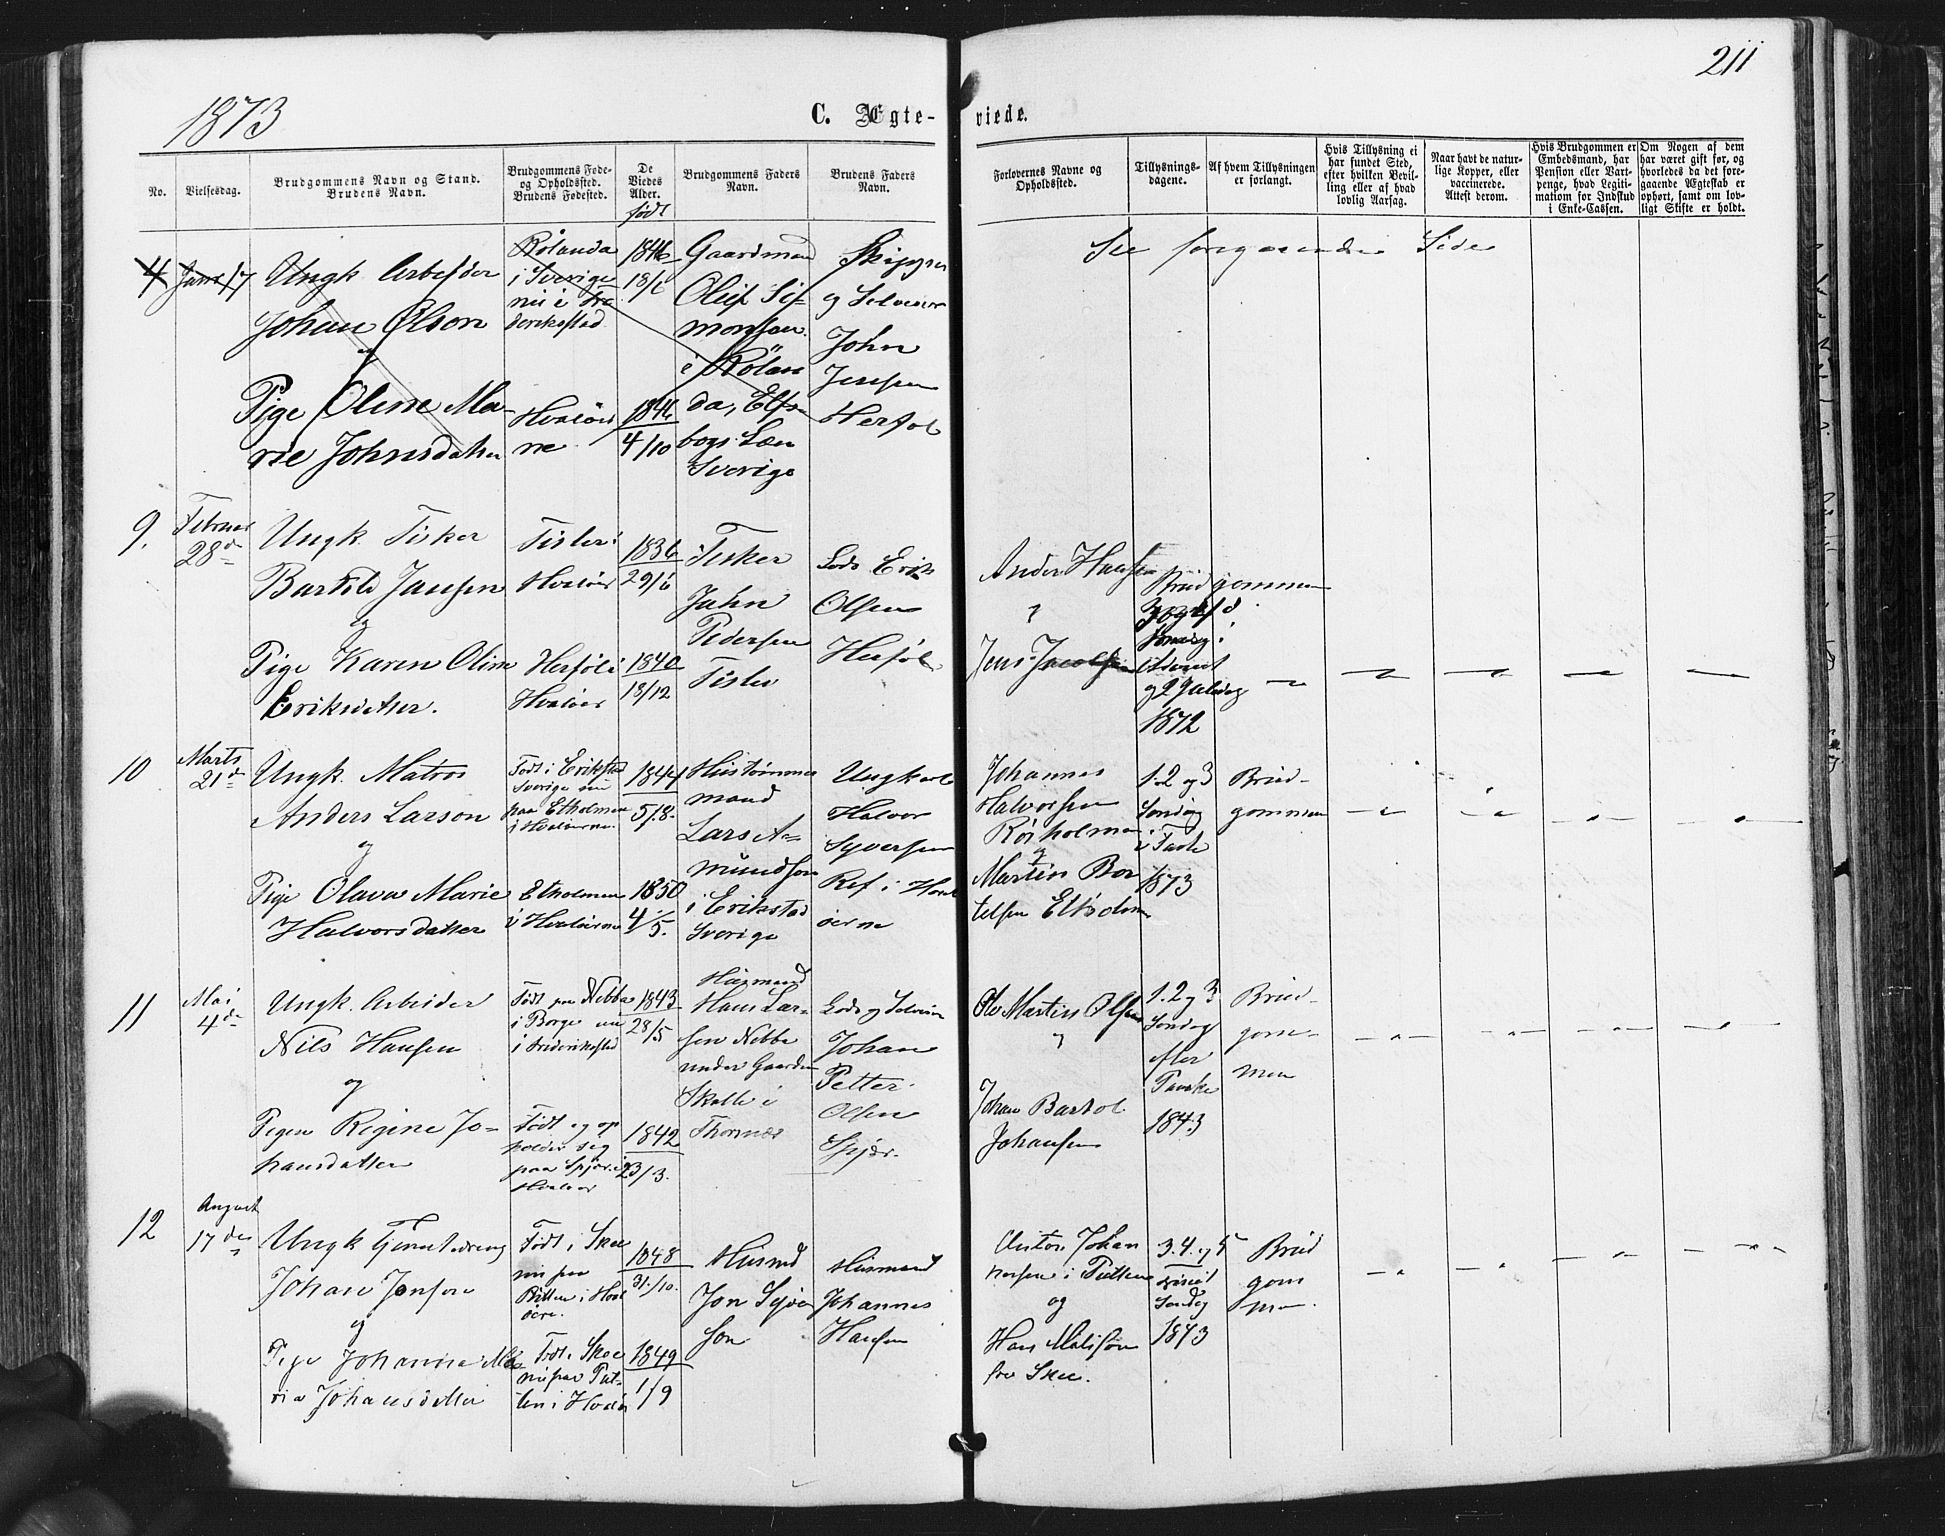 1873
C. Ægte-
viede.
211
No.
Vielsesdag.
Brudgommens Navn og Stand.
Brudens Navn.
Brudgommens Føde-
og Opholdssted.
Brudens Fødested.
De
Viedes
Alder.
født
Brudgommens Faders
Navn.
Brudens Faders
Navn.
Forlovernes Navne og
Opholdssted.
Tillysnings-
dagene.
Af hvem Tillysningen
er forlangt.
Hvis Tillysning ei
har fundet Sted,
efter hvilken Bevil-
ling eller af hvad
lovlig Aarsag.
Naar havt de natur-
lige Kopper, eller
vaccinerede.
Attest derom.
Hvis Brudgommen er
Embedsmand, har
Pension eller Vart-
penge, hvad Legiti-
mation for Indskud
i Enke-Cassen.
Om Nogen af dem
har været gift før, og
hvorledes da det fore-
gaaende Ægteskab er
ophørt, samt om lov-
ligt Skifte er holdt.
4
17
Ungk. Arbeider
Johan Olson
og
Pige Oline Ma-
rie Johnsdatter
Rölanda
i Sverige
nu i Fre
derikstad
Hvalöer
ne
1846
18/6
1846
4/10
Gaardmand
Oluf Si-
monsen
i Rölan
da, Elfs
borgs Læn
Sverige
Skipper
og Selveier
John
Jensen
Herføl
See foregaaende Side
9.
Februar
28de
Ungk. Fisker
Bartold Jansen
og
Pige Karen Oline
Eriksdatter.
Tisler i
Hvaløer
Herføl i
Hvaløer
1836
29/6
1840
18/12
Fisker
Jahn
Pedersen
Tisler
Lods Erik
Olsen
Herføl
Anders Hansen
Jens Jacobsen
Brudgommen
Advent
1872
10
Marts
21de
Ungk. Matros
Anders Larson
og
Pige Olava Marie
Halvorsdatter
Født i Erikstad
Sverige nu
paa Etholmen
i Hvaløerne
Etholmen
i Hvaløerne
1844
5/8.
1850
4/5.
mand
Lars A-
mundson
i Erikstad
Sverige
Ungkarl
Halvor
Syversen
Ref i Hval
øerne
Johannes
Halvorsen
Rørholmen
og
Martin Bar
telsen Etholmen
1. 2 og 3
Søndag
i Faste
1873
Brud-
gommen
11
Mai
4de
Ungk. Arbeider
Nils Hansen
og
Pigen Regine Jo-
hansdatter
Født paa Nebba
i Borge nu
i Frederikstad
Født og op
holder sig
paa Spjær i
Hvaløer
1843
28/5
1842
23/3.
Husmand
Hans Lar-
sen Nebba
under Gaarden
Skolle i
Lods og Selveier
Johan
Petter
Olsen
Spjær.
Ole Martin Olsen
og
Johan Bartol
Johansen
1. 2 og 3
Søndag
efter
Paaske
1843
Brud-
gom-
men
12
August
17de
Ungk Tjenestedreng
Johan Jonson
og
Pige Johanna Ma
ria Johansdatter
Født i Skee
nu paa
i Hval
øerne.
Født i Skee
nu paa Put-
ten i Hvaløe
1848
31/10.
1849
1/9
Husmd
Jon Sejer
son
Husmand
Johannes
Hansen
Anton Johan
nesen i Putten
og
Hans
fra Skee.
3. 4. og 5
Søndag
1873
Brud
gom
men.